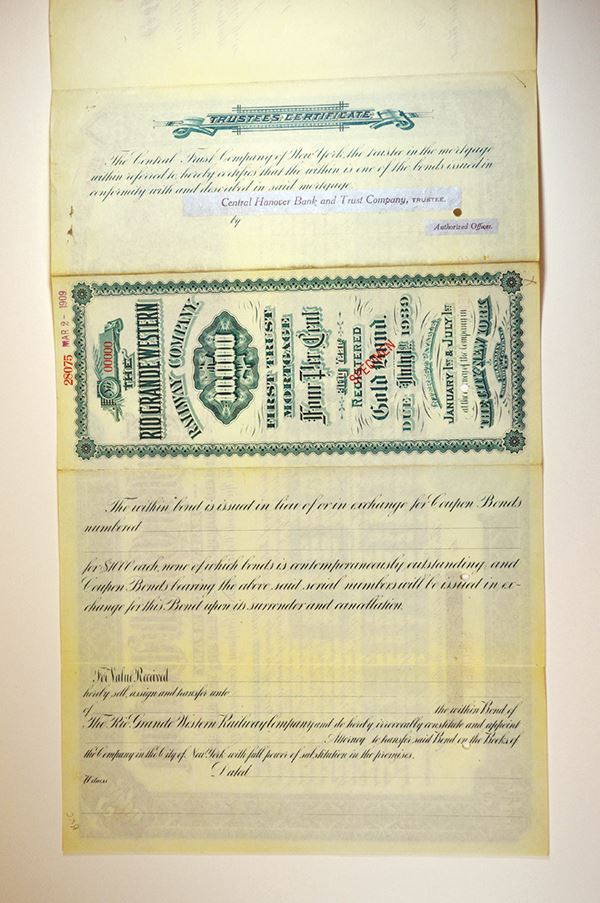 TRUSTEES CERTIFICATE.
The Central Trust Company of New York, the trustee in the mortgage
within referred to, hereby certifies that the within is one of the bonds issued in
conformity with and described in said mortgage.
Central Hanover Bank and Trust Company, TRUSTEE.
by
Authorized Officer.
28075 MAR 2- 1909
No 00000
THE
RIO GRANDE WESTERN
RAILWAY COMPANY.
$10,000
FIRST TRUST
MORTGAGE
Four Per Cent
Fifty Year
REGISTERED
SPECIMEN
Gold Bond.
DUE July 1st 1939
JANUARY 1st & JULY 1st
at the Agency of the Company in
THE CITY OF NEW YORK
The within bond is issued in lieu of or in exchange for Coupon Bonds
numbered
for $1000 each, none of which bonds is contemporaneously outstanding, and
Coupon Bonds bearing the above said serial numbers will be issued in ex-
change for this Bond upon its surrender and cancellation.
For Value Received
hereby sell, assign and transfer unto
of the within Bond of
The Rio Grande Western Railway Company and do hereby irrevocably constitute and appoint
Attorney to transfer said Bond on the Books of
the Company in the City of New York with full power of substitution in the premises.
Dated
Witness